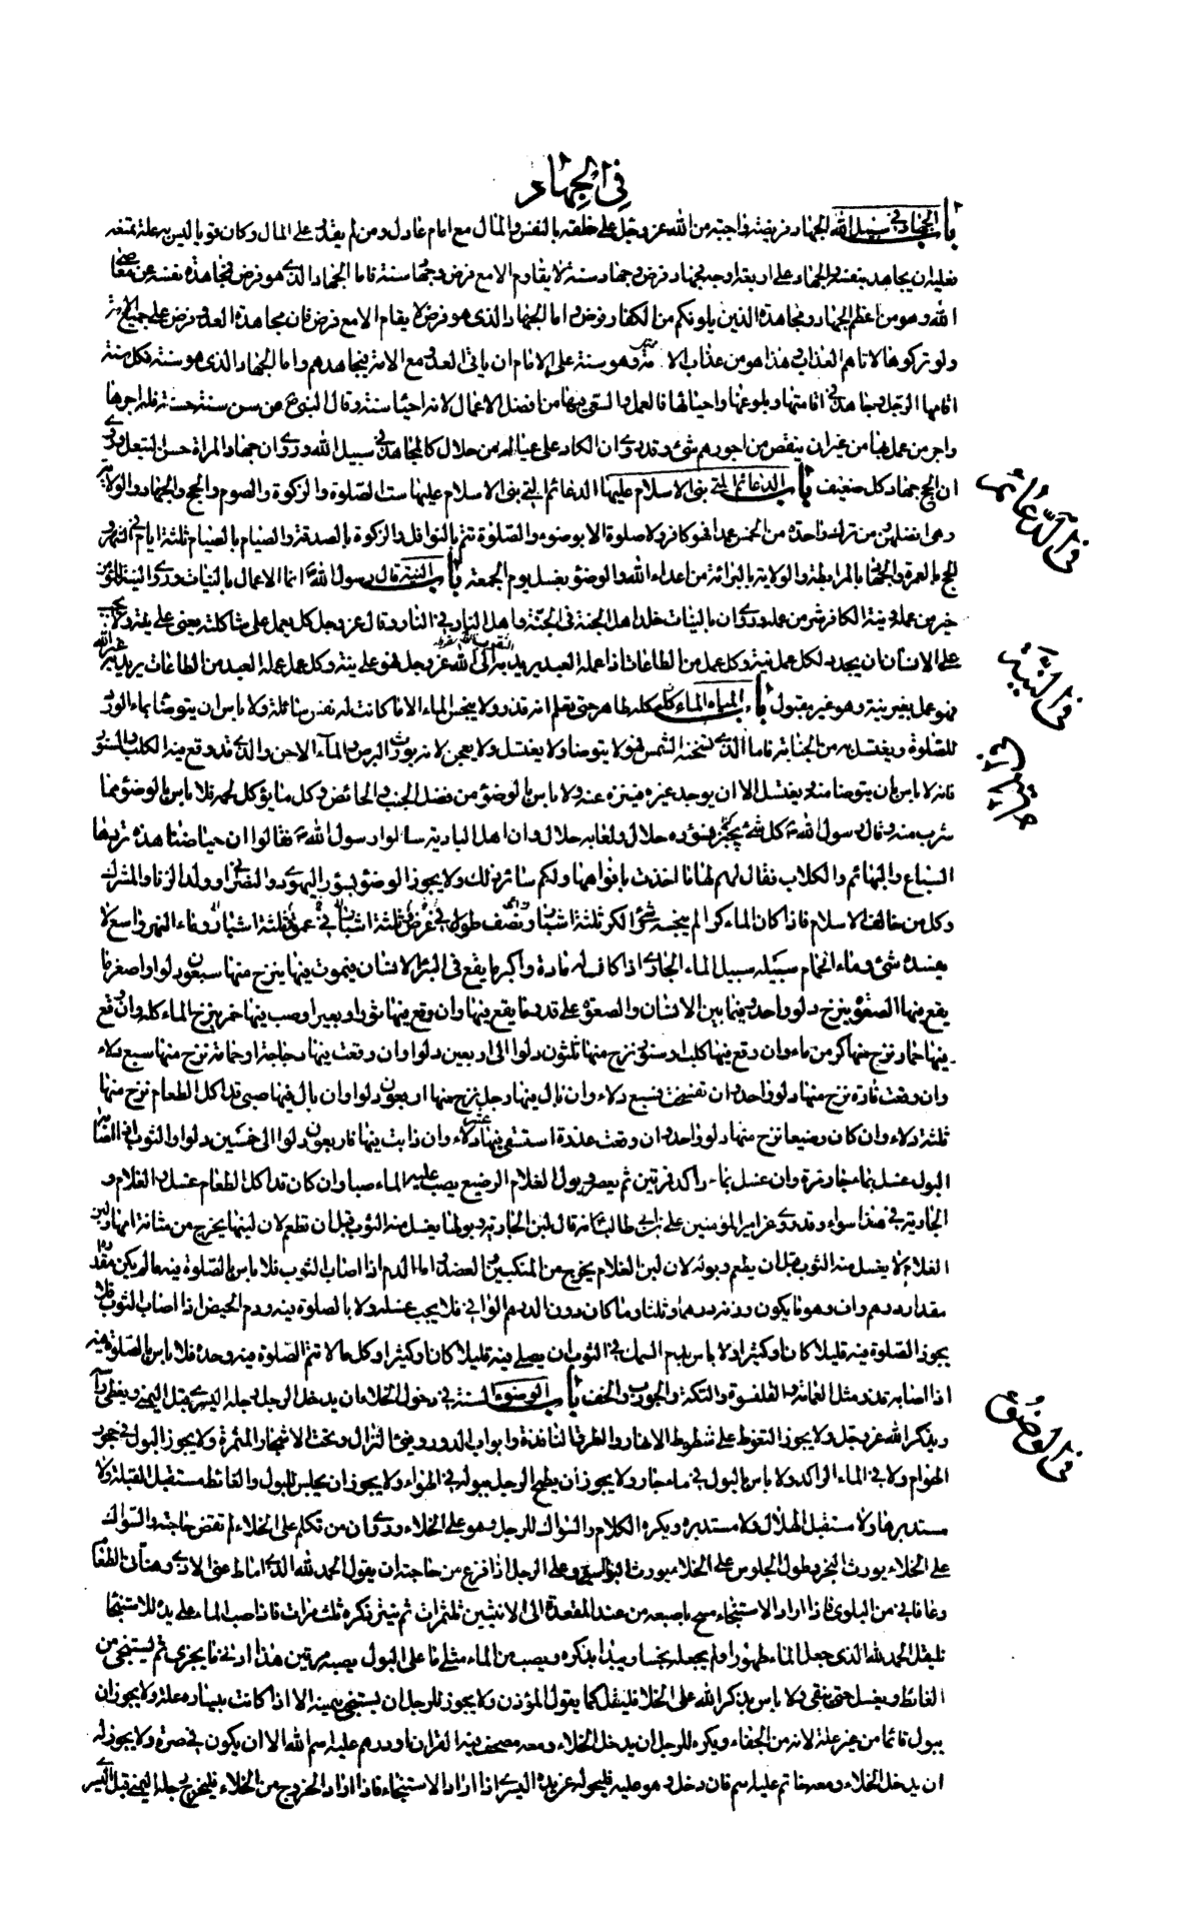 في الجهاد
باب الجهاد في سبيل الله الجهاد فريضة واجبة من الله عز وجل على خلقه بالنفس والمال مع امام عادل ومن لم يقدر على المال وكان قويا ليس به علة تمنعه
فعليه ان يجاهد بنفسه والجهاد على اربعة اوجه فجهاد فرض وجهاد سنة لا يقام الا مع فرض وجهاد سنة فاما الجهاد الذي هو فرض فمجاهدة نفسه عن معاصي
الله وهو من اعظم الجهاد ومجاهدة الذين يلونكم من الكفار فرض واما الجهاد الذي هو فرض لا يقام الا مع فرض فان مجاهدة العدو فرض على جميع الامة
ولو تركوها لاتاهم العذاب هذا هو من عذاب الامة وهو سنة على الامام ان ياتي العدو مع الامة فيجاهدهم واما الجهاد الذي هو سنة فكل سنة
اقامها الرجل وجاهد في اقامتها وبلوغها واحيائها فالعمل والسعي فيها من افضل الاعمال لانه احيا سنة وقال النبي ص من سن سنة حسنة فله اجرها
واجر من عمل بها من غير ان ينقص من اجورهم شئ وقد روي ان الكاد على عياله من حلال كالمجاهد في سبيل الله وروي ان جهاد المراة حسن التبعل وروي
ان الحج جهاد كل ضعيف باب الدعائم التي بني الاسلام عليها الدعائم التي بني الاسلام عليها ست الصلوة والزكوة والصوم والحج والجهاد والولاية
وهي افضلهن من ترك واحدة من الخمس عمدا فهو كافر ولا صلوة الا بوضوء والصلوة تتم بالنوافل والزكوة بالصدقة والصيام بالصيام ثلثة ايام في الشهر و
الحج بالعمرة والجهاد بالمرابطة والولاية بالبرائة من اعداء الله والوضوء بغسل يوم الجمعة باب النية قال رسول الله انما الاعمال بالنيات وروي ان نية المؤمن
خير من عمله ونية الكافر شر من عمله وروي ان بالنيات خلد اهل الجنة في الجنة واهل النار في النار وقال عز وجل كل يعمل على شاكلته يعني على نيته ولا يجب
على الانسان ان يجدد لكل عمل نية وكل عمل من الطاعات اذا عمله العبد يريد به التقرب الى الله عز وجل فهو على نية وكل عمل عمله العبد من الطاعات يريد به غير الله
فهو عمل بغير نية وهو غير مقبول باب المياه الماء كله طاهر حتى تعلم انه قذر ولا ينجس الماء الا ما كانت له نفس سائلة ولا باس ان يتوضا بماء الورد
للصلوة ويغتسل به من الجنابة فاما الذي تسخنه الشمس فهو لا يتوضا به ولا يغتسل ولا يعجن لانه يورث البرص والماء الاجن والذي قد وقع فيه الكلب والسنور
فانه لا باس بان يتوضا منه ويغتسل الا ان يوجد غيره فينزه عنه ولا باس بالوضوء من فضل الجنب والحائض وكل ما يؤكل لحمه فلا باس بالوضوء مما
شرب منه وقال رسول الله كل شئ يجتر فسؤره حلال ولعابه حلال وان اهل البادية سالوا رسول الله فقالوا ان حياضنا هذه تردها
السباع والبهائم والكلاب فقال لهم لها ما اخذت بافواهها ولكم سائر ذلك ولا يجوز الوضوء بسؤر اليهودي والنصراني وولد الزنا والمشرك
وكل من خالف الاسلام فاذا كان الماء كرا لم ينجسه شئ الكر ثلثة اشبار ونصف طولا في عرض ثلثة اشبار في عمق ثلثة اشبار وماء النهر واسع لا
يفسده شئ وماء الحمام سبيله سبيل الماء الجاري اذا كان له مادة واكبر ما يقع في البئر الانسان فيموت فيها ينزح منها سبعون دلوا واصغر ما
يقع فيها الصعوة ينزح دلو واحد وفيما بين الانسان والصعوة على قدر ما يقع فيها وان وقع فيها ثور او بعير او صب فيها خمر ينزح الماء كله وان وقع
فيها حمار نزح منها كر من ماء وان وقع فيها كلب او سنور نزح منها ثلثون دلوا الى اربعين دلوا وان وقعت فيها دجاجة او حمامة نزح منها سبع دلاء
وان وقعت فارة نزح منها دلو واحد وان تفسخت فسبع دلاء وان بال فيها رجل نزح منها اربعون دلوا وان بال فيها صبي قد اكل الطعام نزح منها
ثلثة دلاء وان كان رضيعا نزح منها دلو واحد وان وقعت عذرة استقي فيها عشر دلاء وان ذابت فيها فاربعون دلوا الى خمسين دلوا والثوب اذا اصابه
البول غسل بماء جار مرة وان غسل بماء راكد فمرتين ثم يعصر وبول الغلام الرضيع يصب عليه الماء صبا وان كان قد اكل الطعام غسل والغلام و
الجارية في هذا سواء وقد روي عن امير المؤمنين علي بن ابي طالب انه قال لبن الجارية وبولها يغسل منه الثوب قبل ان تطعم لان لبنها يخرج من مثانة امها ولبن
الغلام لا يغسل منه الثوب قبل ان يطعم وبوله لان لبن الغلام يخرج من المنكبين والعضدين واما الدم اذا اصاب الثوب فلا باس بالصلوة فيه ما لم يكن مقداره
مقدار درهم واف وهو ما يكون وزنه درهما وثلثا وما كان دون الدرهم الوافي فلا يجب غسله ولا بالصلوة فيه ودم الحيض اذا اصاب الثوب فلا
يجوز الصلوة فيه قليلا كان او كثيرا ولا باس بدم السمك في الثوب ان يصلي فيه قليلا كان او كثيرا وكل ما لا تتم الصلوة فيه وحده فلا باس بالصلوة فيه
اذا اصابه قذر مثل العمامة والقلنسوة والتكة والجورب والخف باب الوضوء السنة في دخول الخلاء ان يدخل الرجل رجله اليسرى قبل اليمنى ويغطي راسه
ويذكر الله عز وجل ولا يجوز التغوط على شطوط الانهار والطرق النافذة وابواب الدور وفئ النزال وتحت الاشجار المثمرة ولا يجوز البول في جحور
الهوام ولا في الماء الراكد ولا باس بالبول في ماء جار ولا يجوز ان يطمح الرجل ببوله في الهواء ولا يجوز ان يجلس للبول والغائط مستقبل القبلة ولا
مستدبرها ولا مستقبل الهلال ولا مستدبره ويكره الكلام والسواك للرجل وهو على الخلاء وروي ان من تكلم على الخلاء لم تقض حاجته والسواك
على الخلاء يورث البخر وطول الجلوس على الخلاء يورث البواسير وعلى الرجل اذا فرغ من حاجته ان يقول الحمد لله الذي اماط عني الاذى وهناني الطعام
وعافاني من البلوى فاذا اراد الاستنجاء مسح باصبعه من عند المقعدة الى الانثيين ثلث مرات ثم ينتر ذكره ثلث مرات فاذا صب الماء على يده للاستنجاء
فليقل الحمد لله الذي جعل الماء طهورا ولم يجعله نجسا ويبدا بذكره ويصب من الماء مثلي ما على البول يصبه مرتين هذا ادنى ما يجزي ثم يستنجي من
الغائط ويغسل حتى ينقى ولا باس بذكر الله على الخلاء فليقل كما يقول المؤذن ولا يجوز للرجل ان يستنجي بيمينه الا اذا كانت بيساره علة ولا يجوز ان
يبول قائما من غير علة لانه من الجفاء ويكره للرجل ان يدخل الخلاء ومعه مصحف فيه القران او درهم عليه اسم الله الا ان يكون في صرة ولا يجوز له
ان يدخل الخلاء ومعه خاتم عليه اسم فان دخل وهو عليه فليحوله عن يده اليسرى اذا اراد الاستنجاء فاذا اراد الخروج من الخلاء فليخرج رجله اليمنى قبل اليسرى
في الدعائم
في النية
في الوضوء